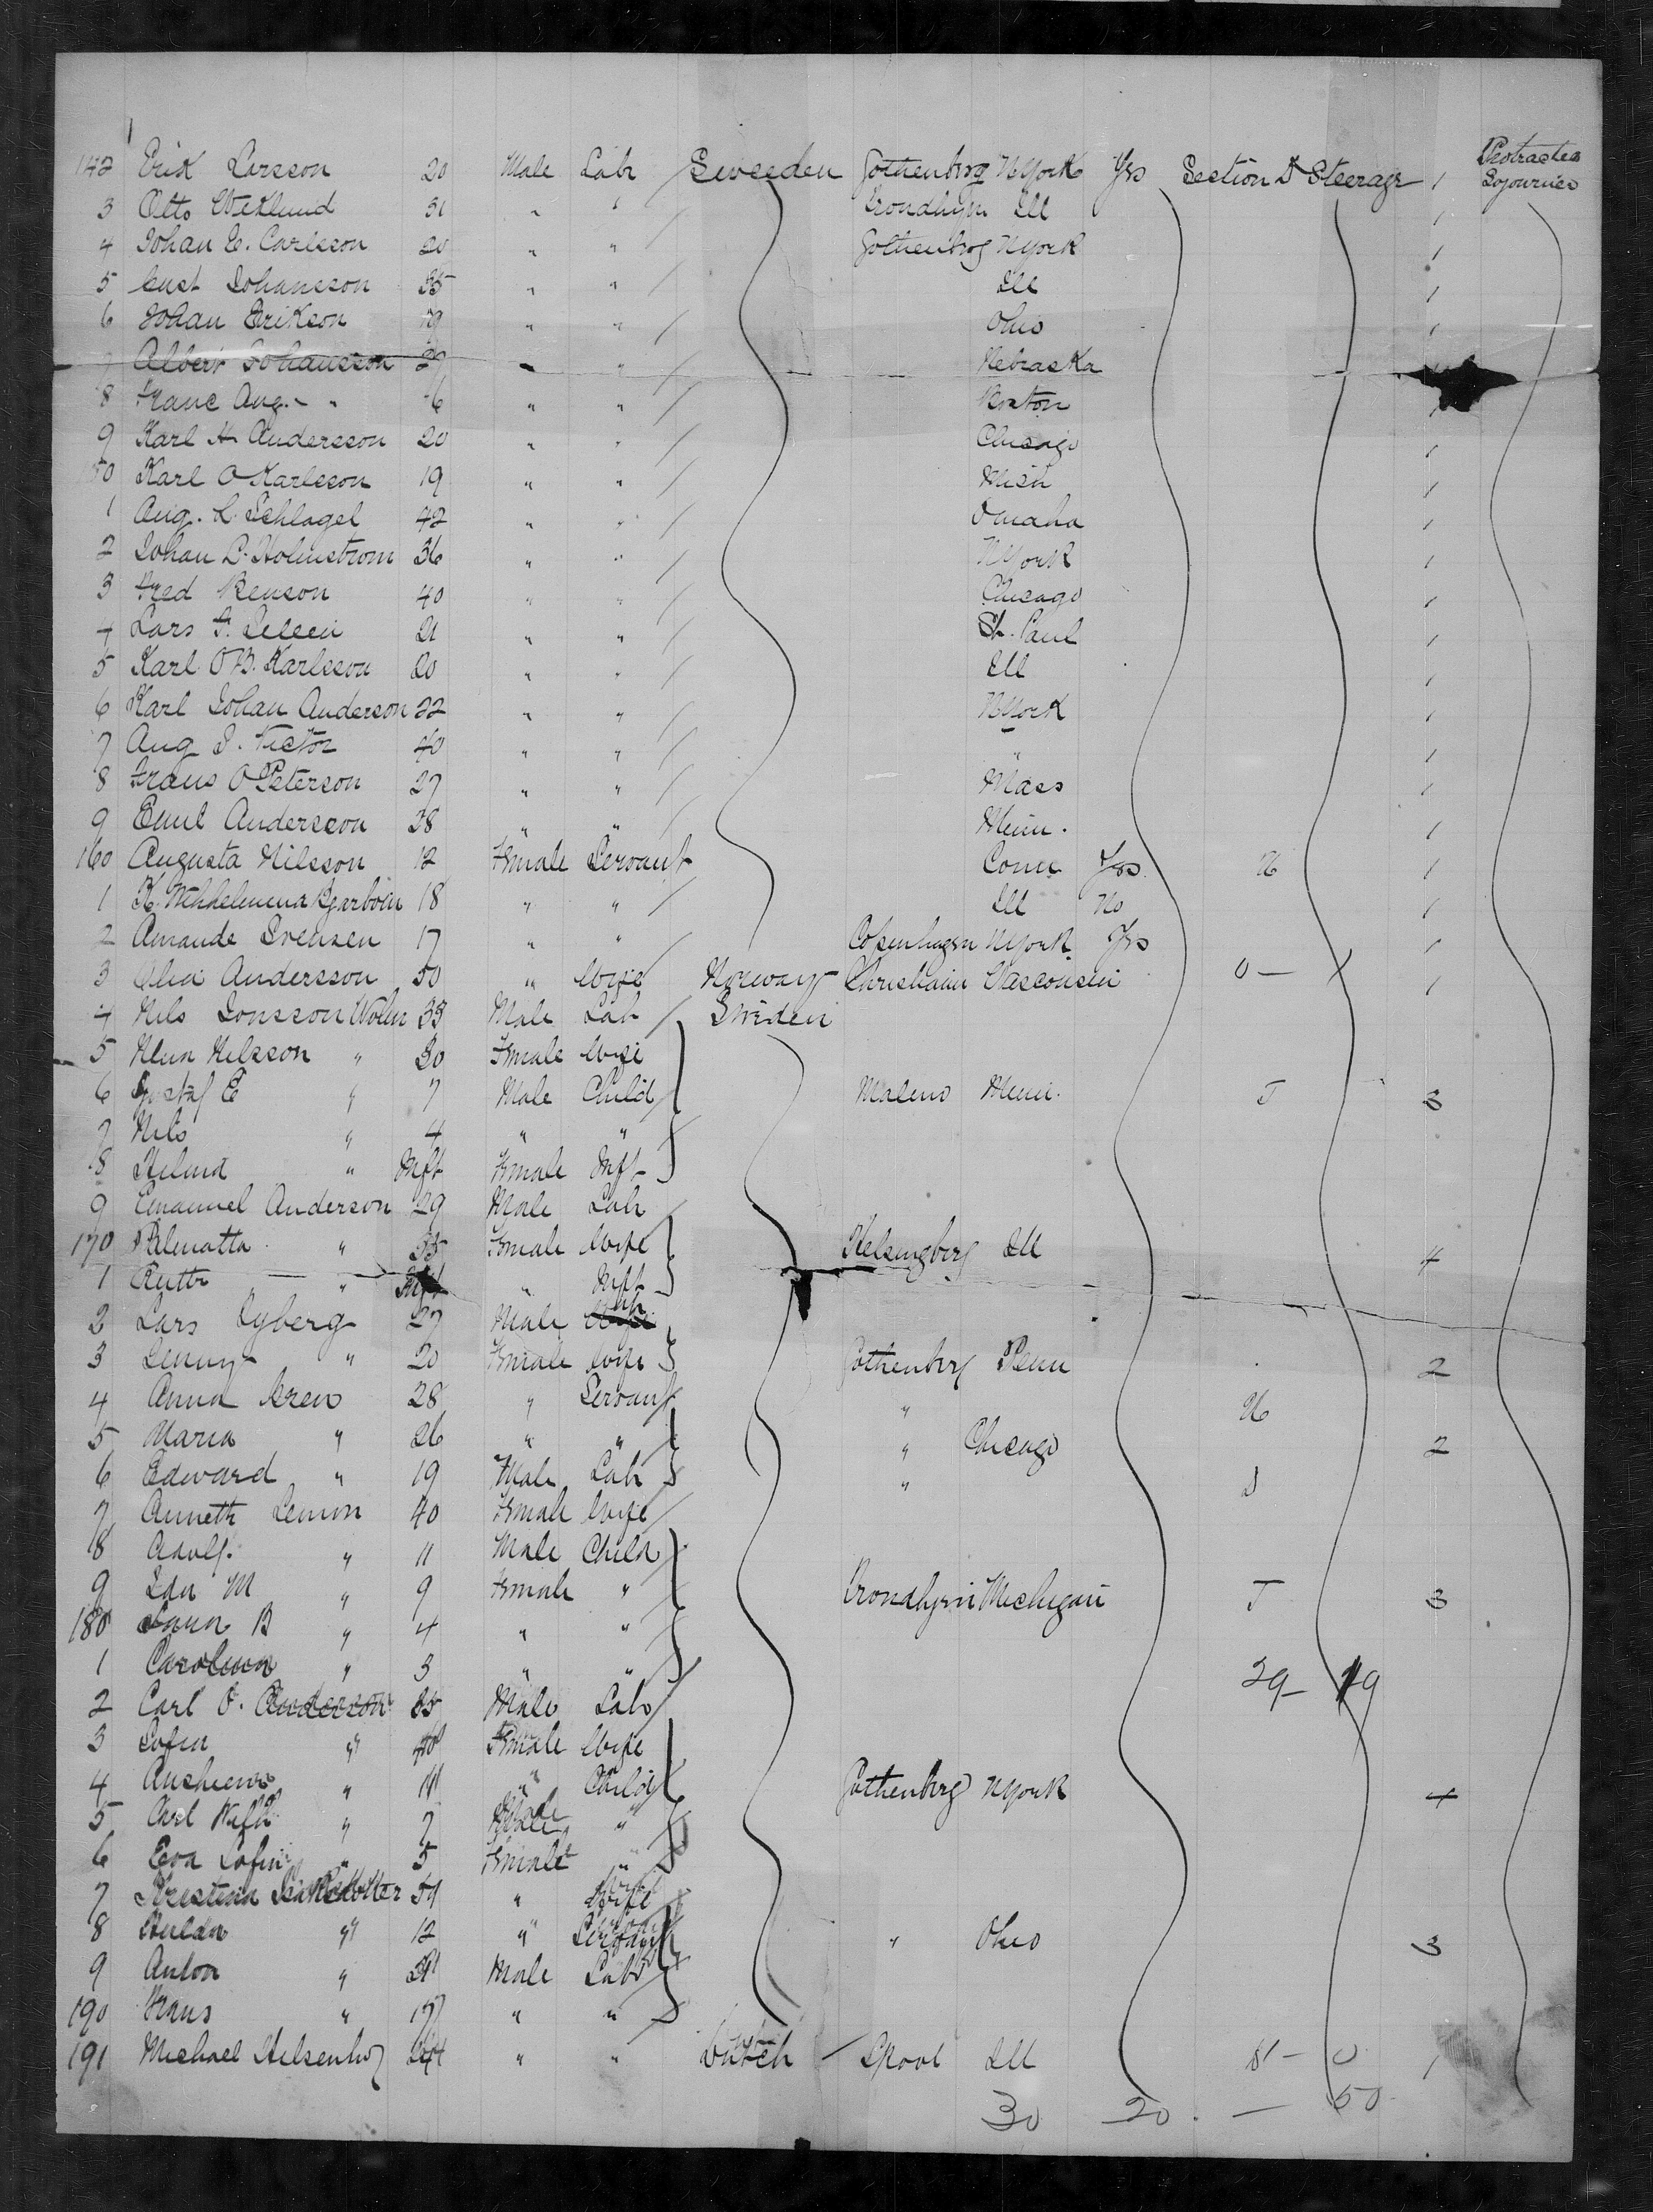 Protracted
142 Erik Larsson 20 Male Labr Sweeden Gothenborg NYork Yes Section D Steerage 1 Sojourner
3 Otto Weklund 31 " " Trondhym Ill 1
4 Johan E. Carlsson 20 " " Gothenborg NYork 1
5 Gust Johansson 35 " " Ill 1
6 Johan Erikson 19 " " Ohio 1
7 Albert Johansson 27 " " Nebraska
8 Franc Aug. " " " Boston 1
9 Karl A Andersson 20 " " Chicago 1
150 Karl O Karlsson 19 " " Mich 1
1 Aug. L. Schlagel 42 " " Omaha 1
2 Johan L. Holmstrom 36 " " NYork 1
3 Fred Benson 40 " " Chicago 1
4 Lars F. 21 " " St. Paul 1
5 Karl O B. Karlsson 20 " " Ill 1
6 Karl Johan Anderson 22 " " NYork 1
7 Aug J. Victor 40 " " " 1
8 Frans O Peterson 27 " " Mass 1
9 Emil Andersson 28 " " Minn. 1
160 Augusta Nilsson 12 Female Servant Conn Yes U 1
1 K. 18 " " Ill No 1
2 Amande Svensen 17 " " Copenhagen NYork Yes 1
3 Andersson 50 " Wife Norway Christiania Wisconsin O — 1
4 Nils Jonsson Wolin 33 Male Labr Sweden
5 Nilsson " 30 Female Wife
6 Gustaf E " 7 Male Child Malmo Minn. T 3
7 Nils " 4 " "
8 Hilma " Inft Female Inft
9 Emanuel Anderson 29 Male Labr
170 " 35 Female Wife Helsingberg Ill 4
1 Ruth " Inft " Inft
2 Lars Lyberg 27 Male Labr
3 Jenny " 20 Female Wife Gothenberg Penn 2
4 Anna 28 " Servant " U
5 Maria " 26 " " " Chicago 2
6 Edward " 19 Male Labr "
7 Anneth Lemon 40 Female Wife
8 Adolf. " 11 Male Child
9 Ida M " 9 Female " Trondhjem Michigan T 3
180 B " 4 " "
1 Carolina " 3 " " 29 — 19
2 Carl O. Anderson 35 Male Labr
3 Sofia " 40 Female Wife
4 " 11 " Child Gothenberg NYork 4
5 Carl " 7 Male "
6 Eva Sofia " 5 Female "
7 Kristina 54 " Wife
8 Hulda " 12 " Servant " Ohio 3
9 Anton " 21 Male Labr
190 Frans " 17 " "
191 Michael 24 " " Dutch Lpool Ill — 0 1
30 20 — 50